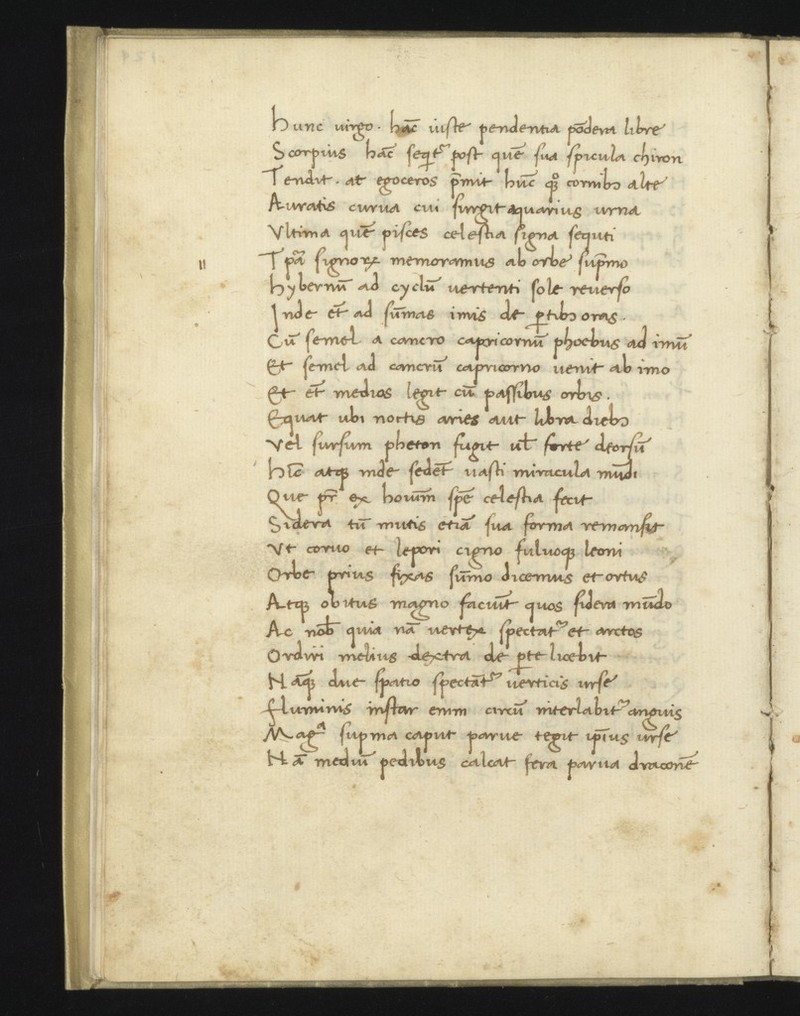 Hunc uirgo. hac̄ iuste pendentia pōdera libre
Scorpius hac̄ seqit᷑ post quē sua spicula chiron
Tendit. at egoceros p̄mit huc̄ qꝫ cornibꝫ alte
Auratis curua cui surgit aquarius urna
Vltima quē pisces celestia signa sequti
II Tp̄a signoꝝ memoramus ab orbe sup̄mo
Hybernū ad cyclū uertenti sole reuerso
Inde et̄ ad sūmas imis de ꝑtibꝫ oras.
Cū semel a cancro capricornū phoebus ad imū
Et semel ad cancrū capricorno uenit ab imo
Et et̄ medios legit cū passibus orbis.
Equat ubi noctis aries aut libra diebꝫ
Vel sursum pheton fugit ul̄ forte deorsū
Hic̄ atqꝫ inde sedet̄ uasti miracula mūdi
Que pr̄ ex houim̄ spē celestia fecit
Sidera tū mutis etiā sua forma remansit
Vt coruo et lepori cigno fuluoqꝫ leoni
Orbe prius fixas sūmo dicemus et ortus
Atqꝫ obitus magno faciūt quos sidera mūdo
Ac nob̄ quia nā uertex spectat᷑ et arctos
Ordiri melius dextra de ꝑte licebit
Nāqꝫ due spatio spectāt᷑ uerticis urse
Fluminis instar enim circū interlabit᷑ anguis
Magᵃ supma caput parue tegit ip̄ius urse
Nā mediū pedibus calcat fera parua draconē